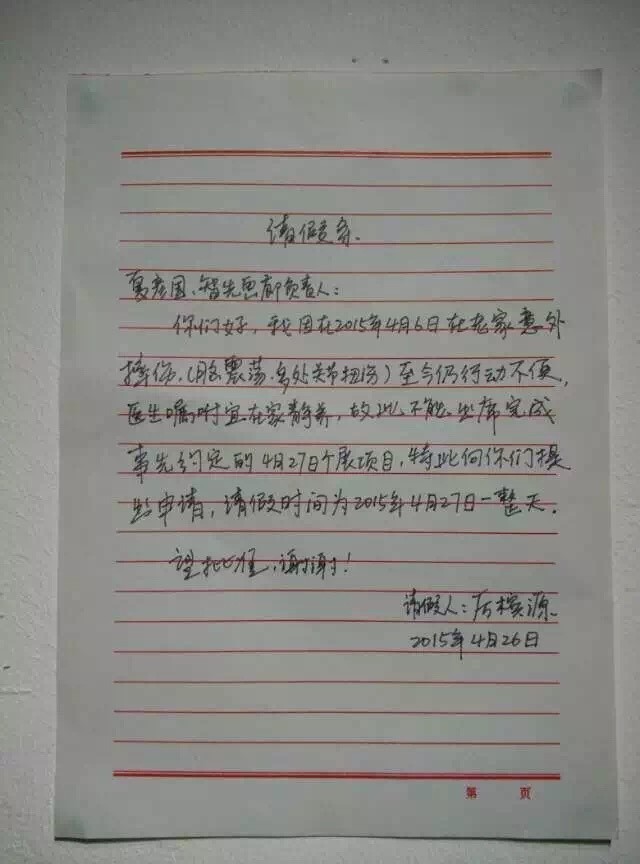 请假条.
夏彦国、智先思廊负责人：
你们好，我因在2015年4月6日在老家意外
摔伤.(脑震荡.多处关节扭伤)至今仍行动不便,
医生嘱咐宜在家静养，故此不能出席完成
事先约定的4月27日个展项目，特此向你们提
出申请，请假时间为2015年4月27日一整天.
望批准，谢谢!
请假人：厉槟源.
2015年4月26日
第 页